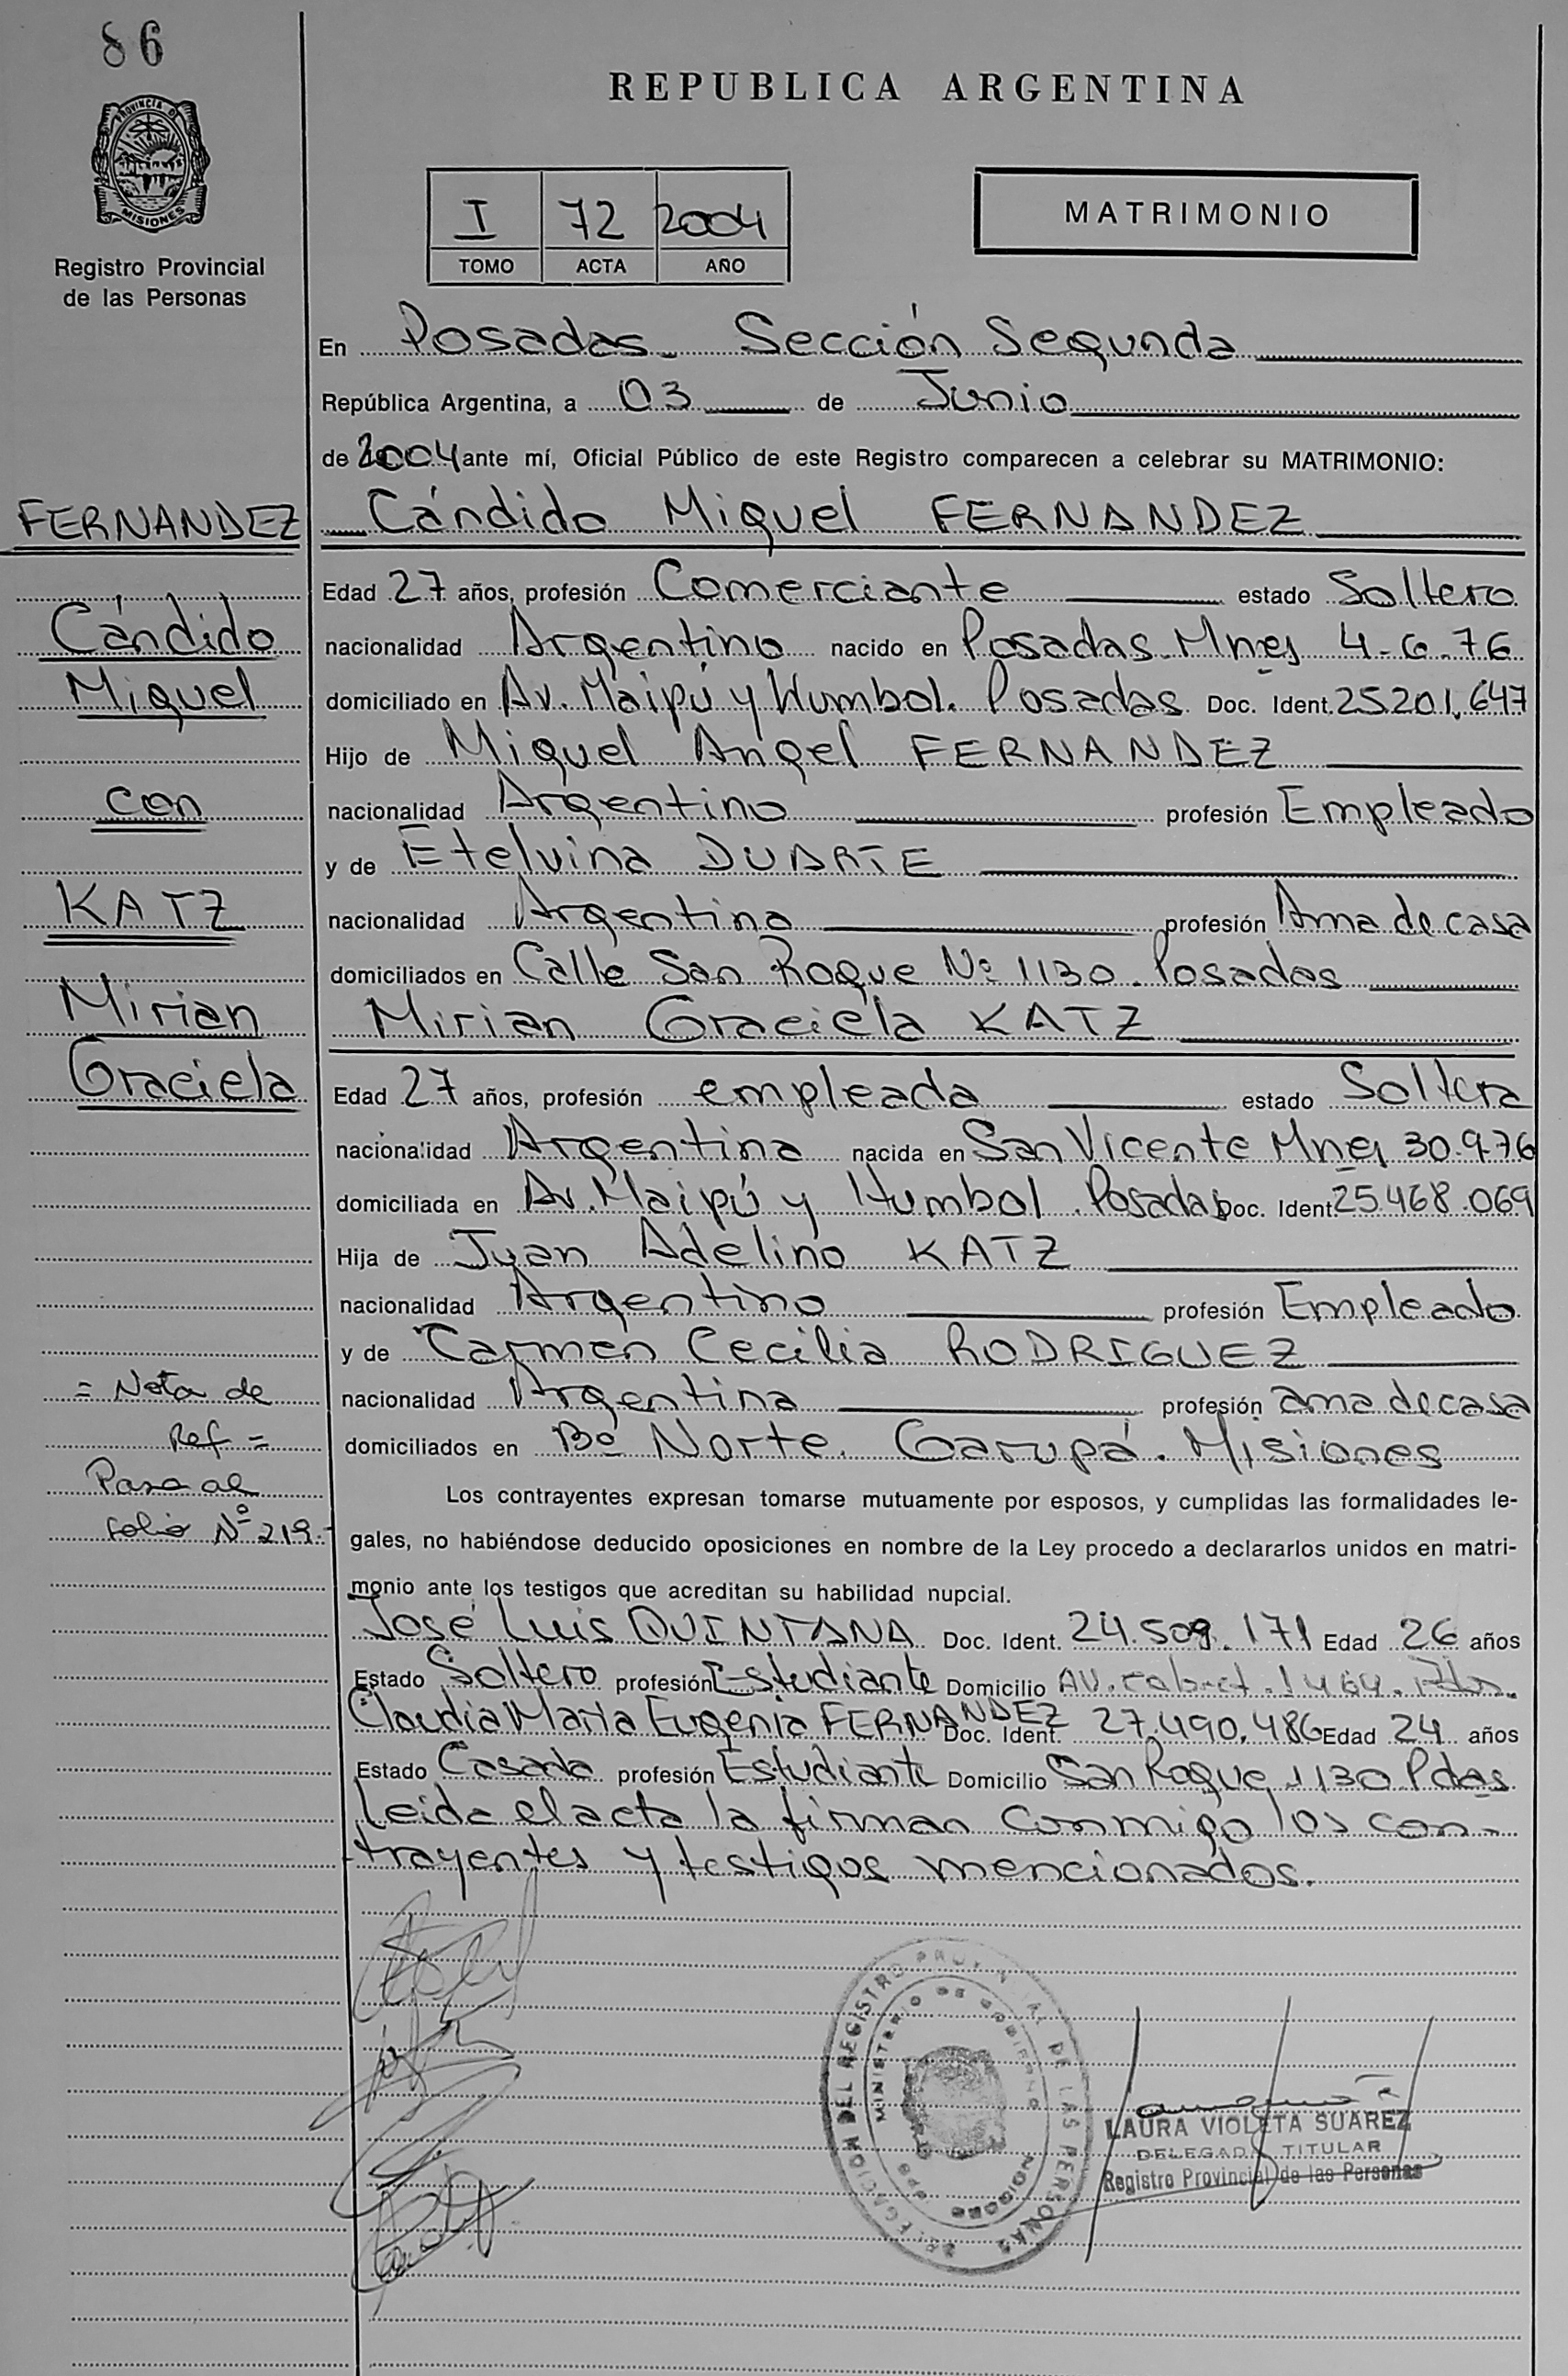 86
REPUBLICA ARGENTINA
PROVINCIA DE
MISIONES
Registro Provincial
de las Personas
I 72 2004
TOMO ACTA AÑO
MATRIMONIO
En Posadas - Sección Segunda
República Argentina, a 03 de Junio
de 2004 ante mí, Oficial Público de este Registro comparecen a celebrar su MATRIMONIO:
FERNANDEZ
Cándido
Miguel
con
KATZ
Mirian
Graciela
= Nota de
Ref =
Pasa al
folio Nº 219.-
Cándido Miguel FERNANDEZ
Edad 27 años, profesión Comerciante estado Soltero
nacionalidad Argentino nacido en Posadas Mnes 4-6-76
domiciliado en Av. Maipú y Humbol. Posadas Doc. Ident. 25.201.647
Hijo de Miguel Angel FERNANDEZ
nacionalidad Argentino profesión Empleado
y de Etelvina DUARTE
nacionalidad Argentina profesión Ama de casa
domiciliados en Calle San Roque Nº 1130. Posadas
Mirian Graciela KATZ
Edad 27 años, profesión empleada estado Soltera
nacionalidad Argentina nacida en San Vicente Mnes 30.9.76
domiciliada en Av. Maipú y Humbol. Posadas Doc. Ident. 25.468.069
Hija de Juan Adelino KATZ
nacionalidad Argentino profesión Empleado
y de Carmen Cecilia RODRIGUEZ
nacionalidad Argentina profesión ama de casa
domiciliados en Bº Norte. Garupá. Misiones
Los contrayentes expresan tomarse mutuamente por esposos, y cumplidas las formalidades le-
gales, no habiéndose deducido oposiciones en nombre de la Ley procedo a declararlos unidos en matri-
monio ante los testigos que acreditan su habilidad nupcial.
José Luis QUINTANA Doc. Ident. 24.509.171 Edad 26 años
Estado Soltero profesión Estudiante Domicilio AV. Cabred. 1464.
Claudia María Eugenia FERNANDEZ Doc. Ident. 27.490.486 Edad 24 años
Estado Casada profesión Estudiante Domicilio San Roque 1130 Pdas
Leida el acta la firman conmigo los con-
trayentes y testigos mencionados.
DEL REGISTRO PROVINCIAL DE LAS PERSONAS
MINISTERIO DE GOBIERNO
LAURA VIOLETA SUAREZ
DELEGADA TITULAR
Registro Provincial de las Personas